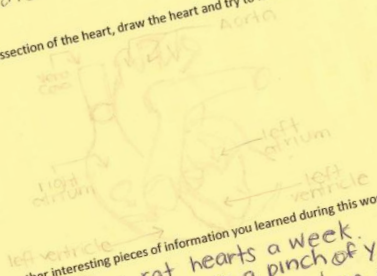 ssection of the heart, draw the heart and try to
Aorta
vena
cava
left
atrium
right
atrium
left
ventricle
left ventricle
her interesting pieces of information you learned during this wo
hearts a week.
a pinch of y